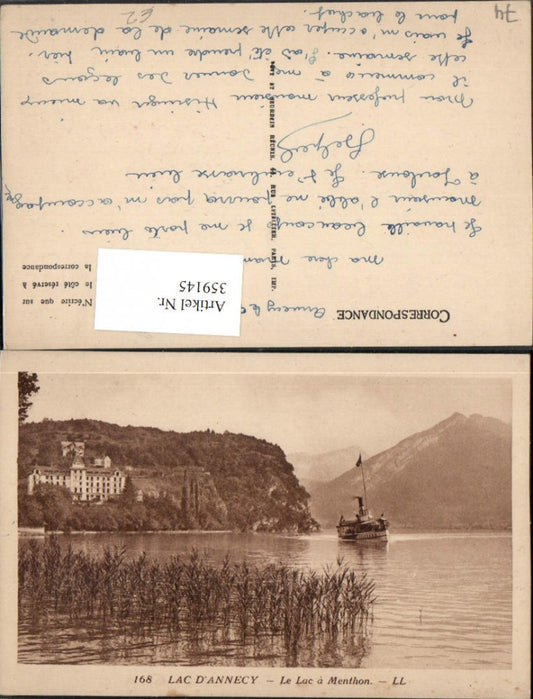 CORRESPONDANCE
N'écrire que sur
le côté réservé à
la correspondance
Annecy le
Artikel Nr.
359145
ma chère Maman
Je travaille beaucoup je me porte bien
monsieur l'abbé ne pourra pas m'accompagner
à Toulouse. Je t'embrasse bien
ET NEURDEIN RÉUNIS, 44, RUE LETELLIER, PARIS, IMP.
Mon professeur monsieur va mieux
il commence à me donner des leçons
cette semaine. J'ai été prendre un bain hier.
Je vais m'occuper cette semaine de la demande
pour le bachot.
62
74
168 LAC D'ANNECY - Le Lac à Menthon. - LL